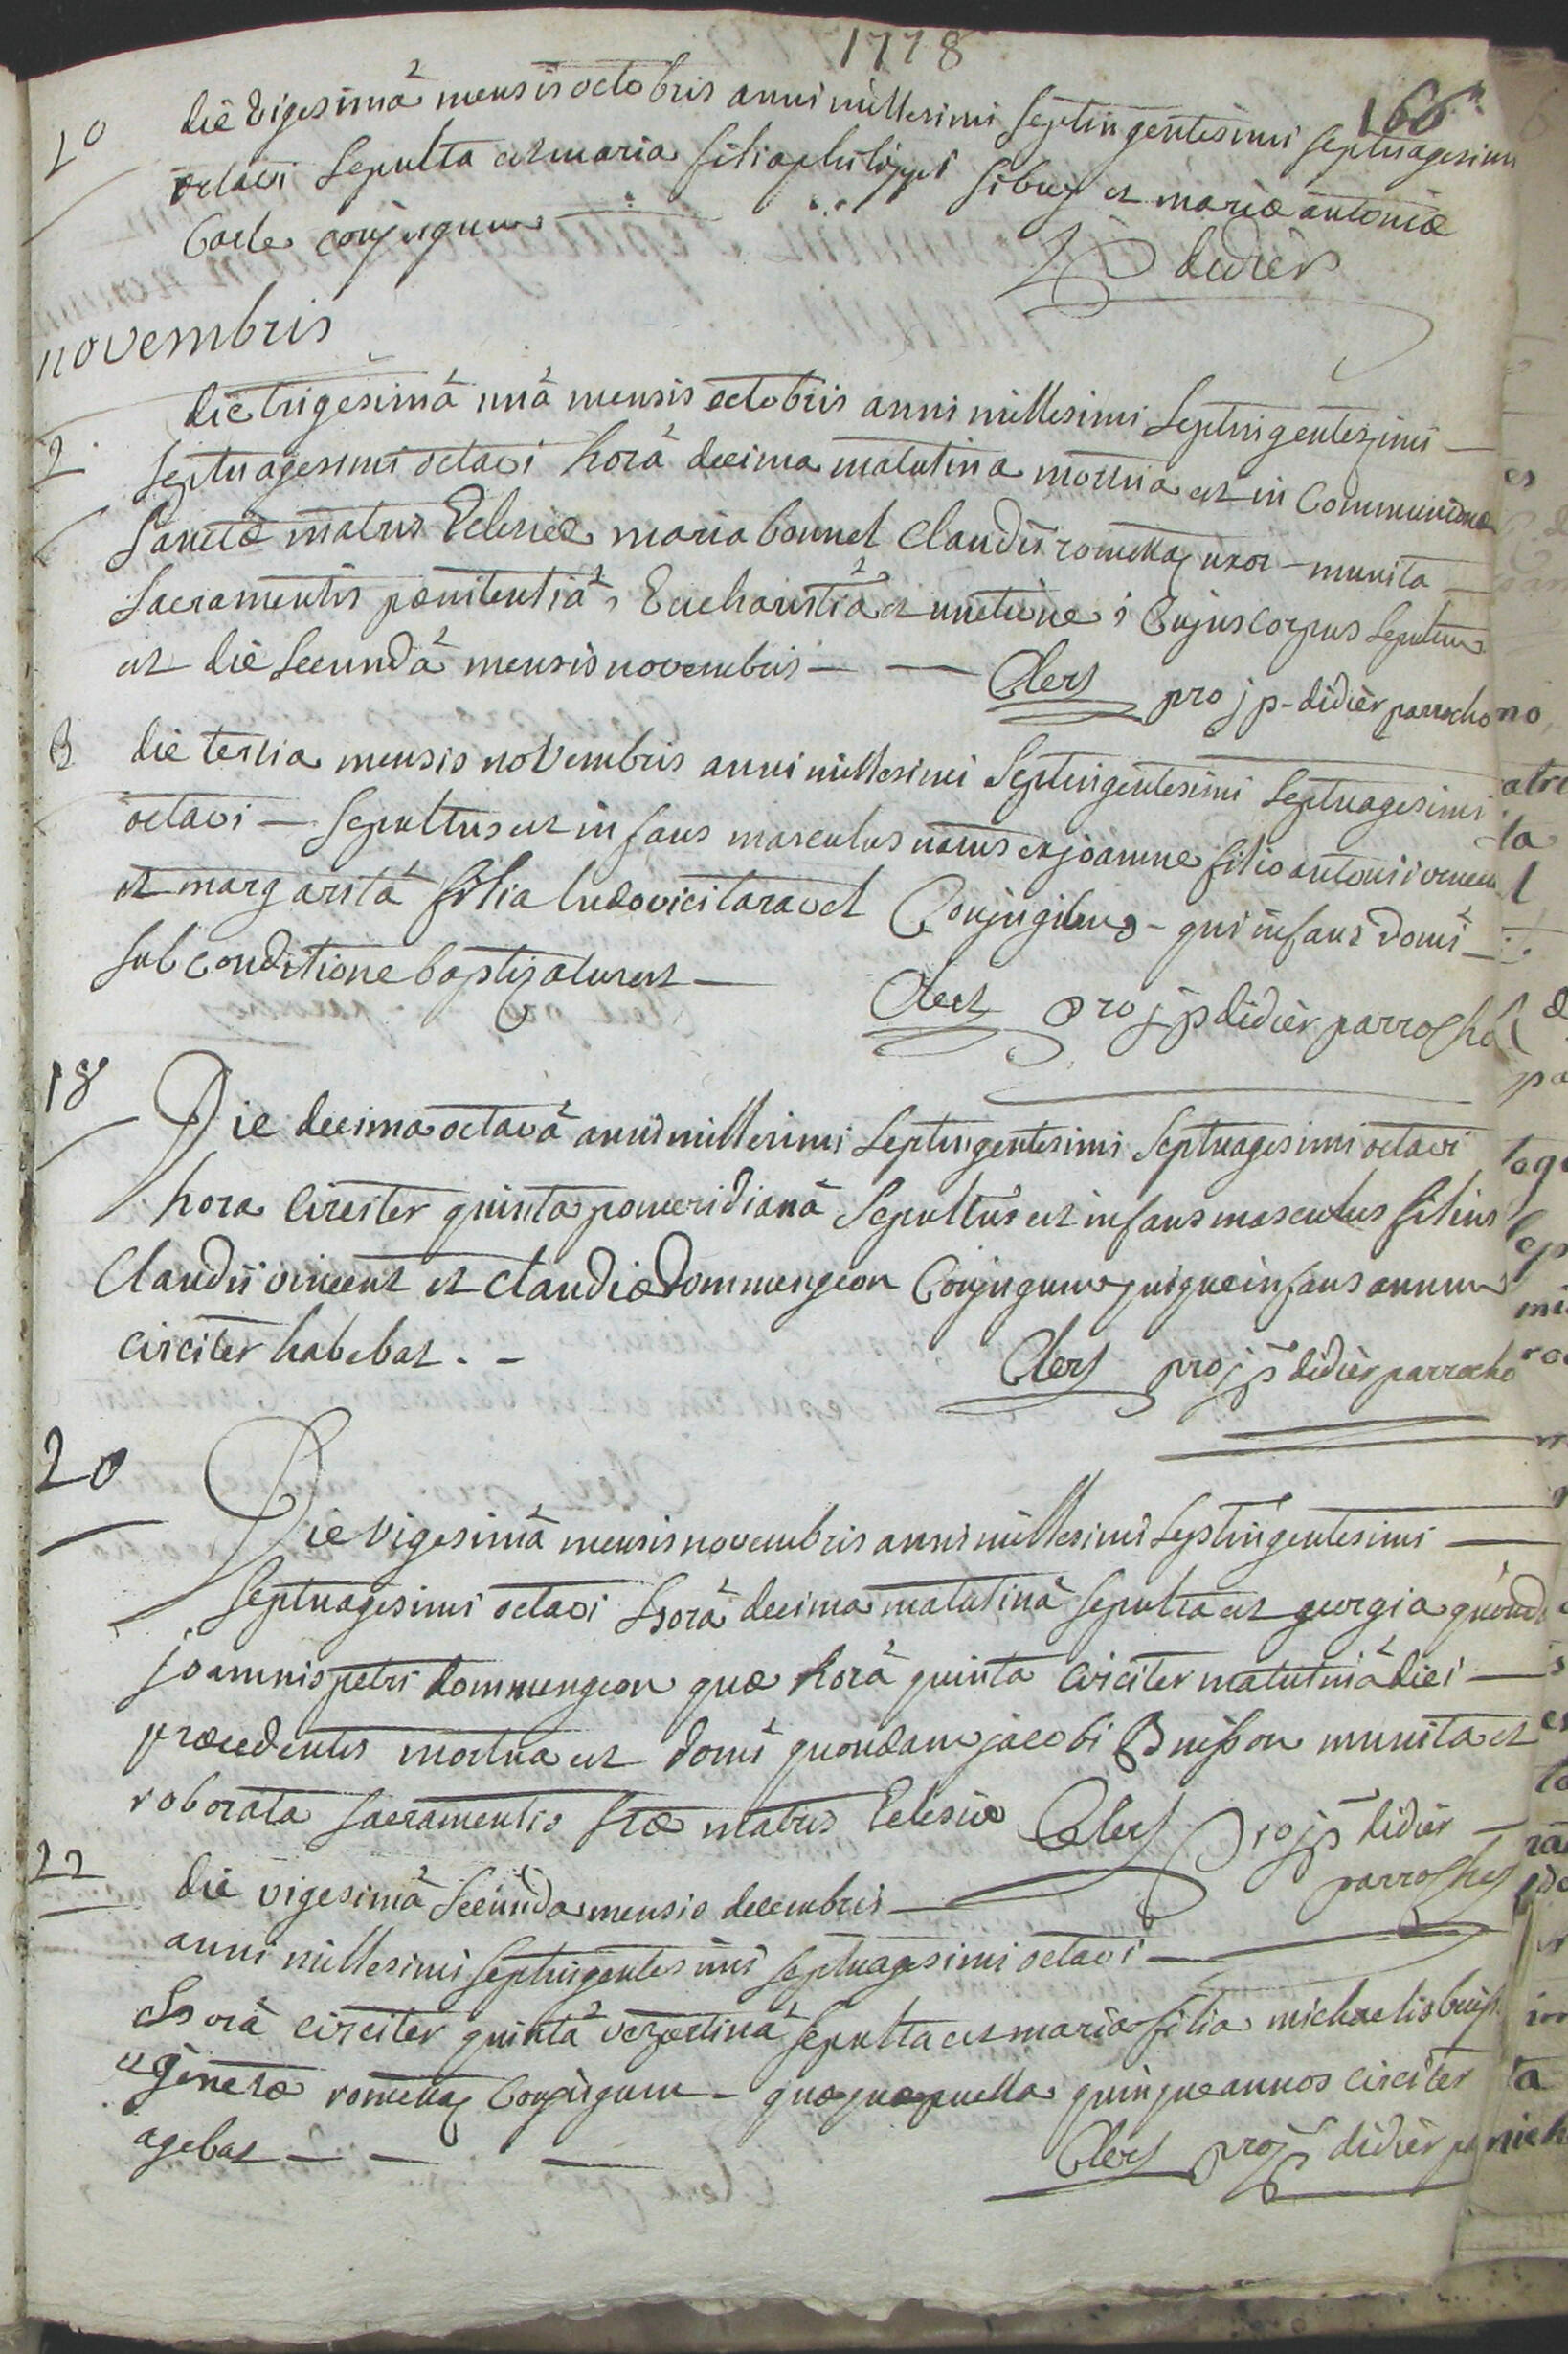 1778
166
20 die vigesimâ mensis octobris anni millesimi septingentesimi septuagesimi
octavi sepulta est maria filia philippi et mariæ antoniæ
conjugum
didier
novembris
2 die trigesimâ unâ mensis octobris anni millesimi septingentesimi
septuagesimi octavi horâ decima matutina mortua est in communione
sanctæ matris Eclesiæ maria bonnet claudii romettaz uxor munita
sacramentis pœnitentiâ, Eucharistiâ et unctione, cujus corpus sepultum
est die secundâ mensis novembris
Clert pro jp didier parrocho
3 die tertia mensis novembris anni millesimi septingentesimi septuagesimi
octavi sepultus est infans masculus natus ex joanne filio antonii vincent
et margaritâ filia ludovici taravel conjugibus qui infans domi
sub conditione baptizatus est
Clert pro jp didier parrocho
18 Die decima octavâ anni millesimi septingentesimi septuagesimi octavi
hora circiter quinta pomeridianâ sepultus est infans masculus filius
Claudii vincent et claudiæ Dommengeon conjugum quique infans annum
circiter habebat. -
Clert pro jp didier parrocho
20 Die vigesimâ mensis novembris anni millesimi septingentesimi
septuagesimi octavi horâ decima matutinâ sepulta est georgia
joannis petri dommengeon quæ horâ quinta circiter matutinâ diei
præcedentis mortua est domi quondam jacobi Buisson munita et
roborata sacramentis stæ matris Eclesiæ Clert pro jp didier
parrocho
22 die vigesimâ secunda mensis decembris
anni millesimi septingentesimi septuagesimi octavi
horâ circiter quintâ vespertinâ sepulta est maria filia michaelis
et ginetæ romettaz conjugum - quæque puella quinque annos circiter
agebat
Clert pro jp didier